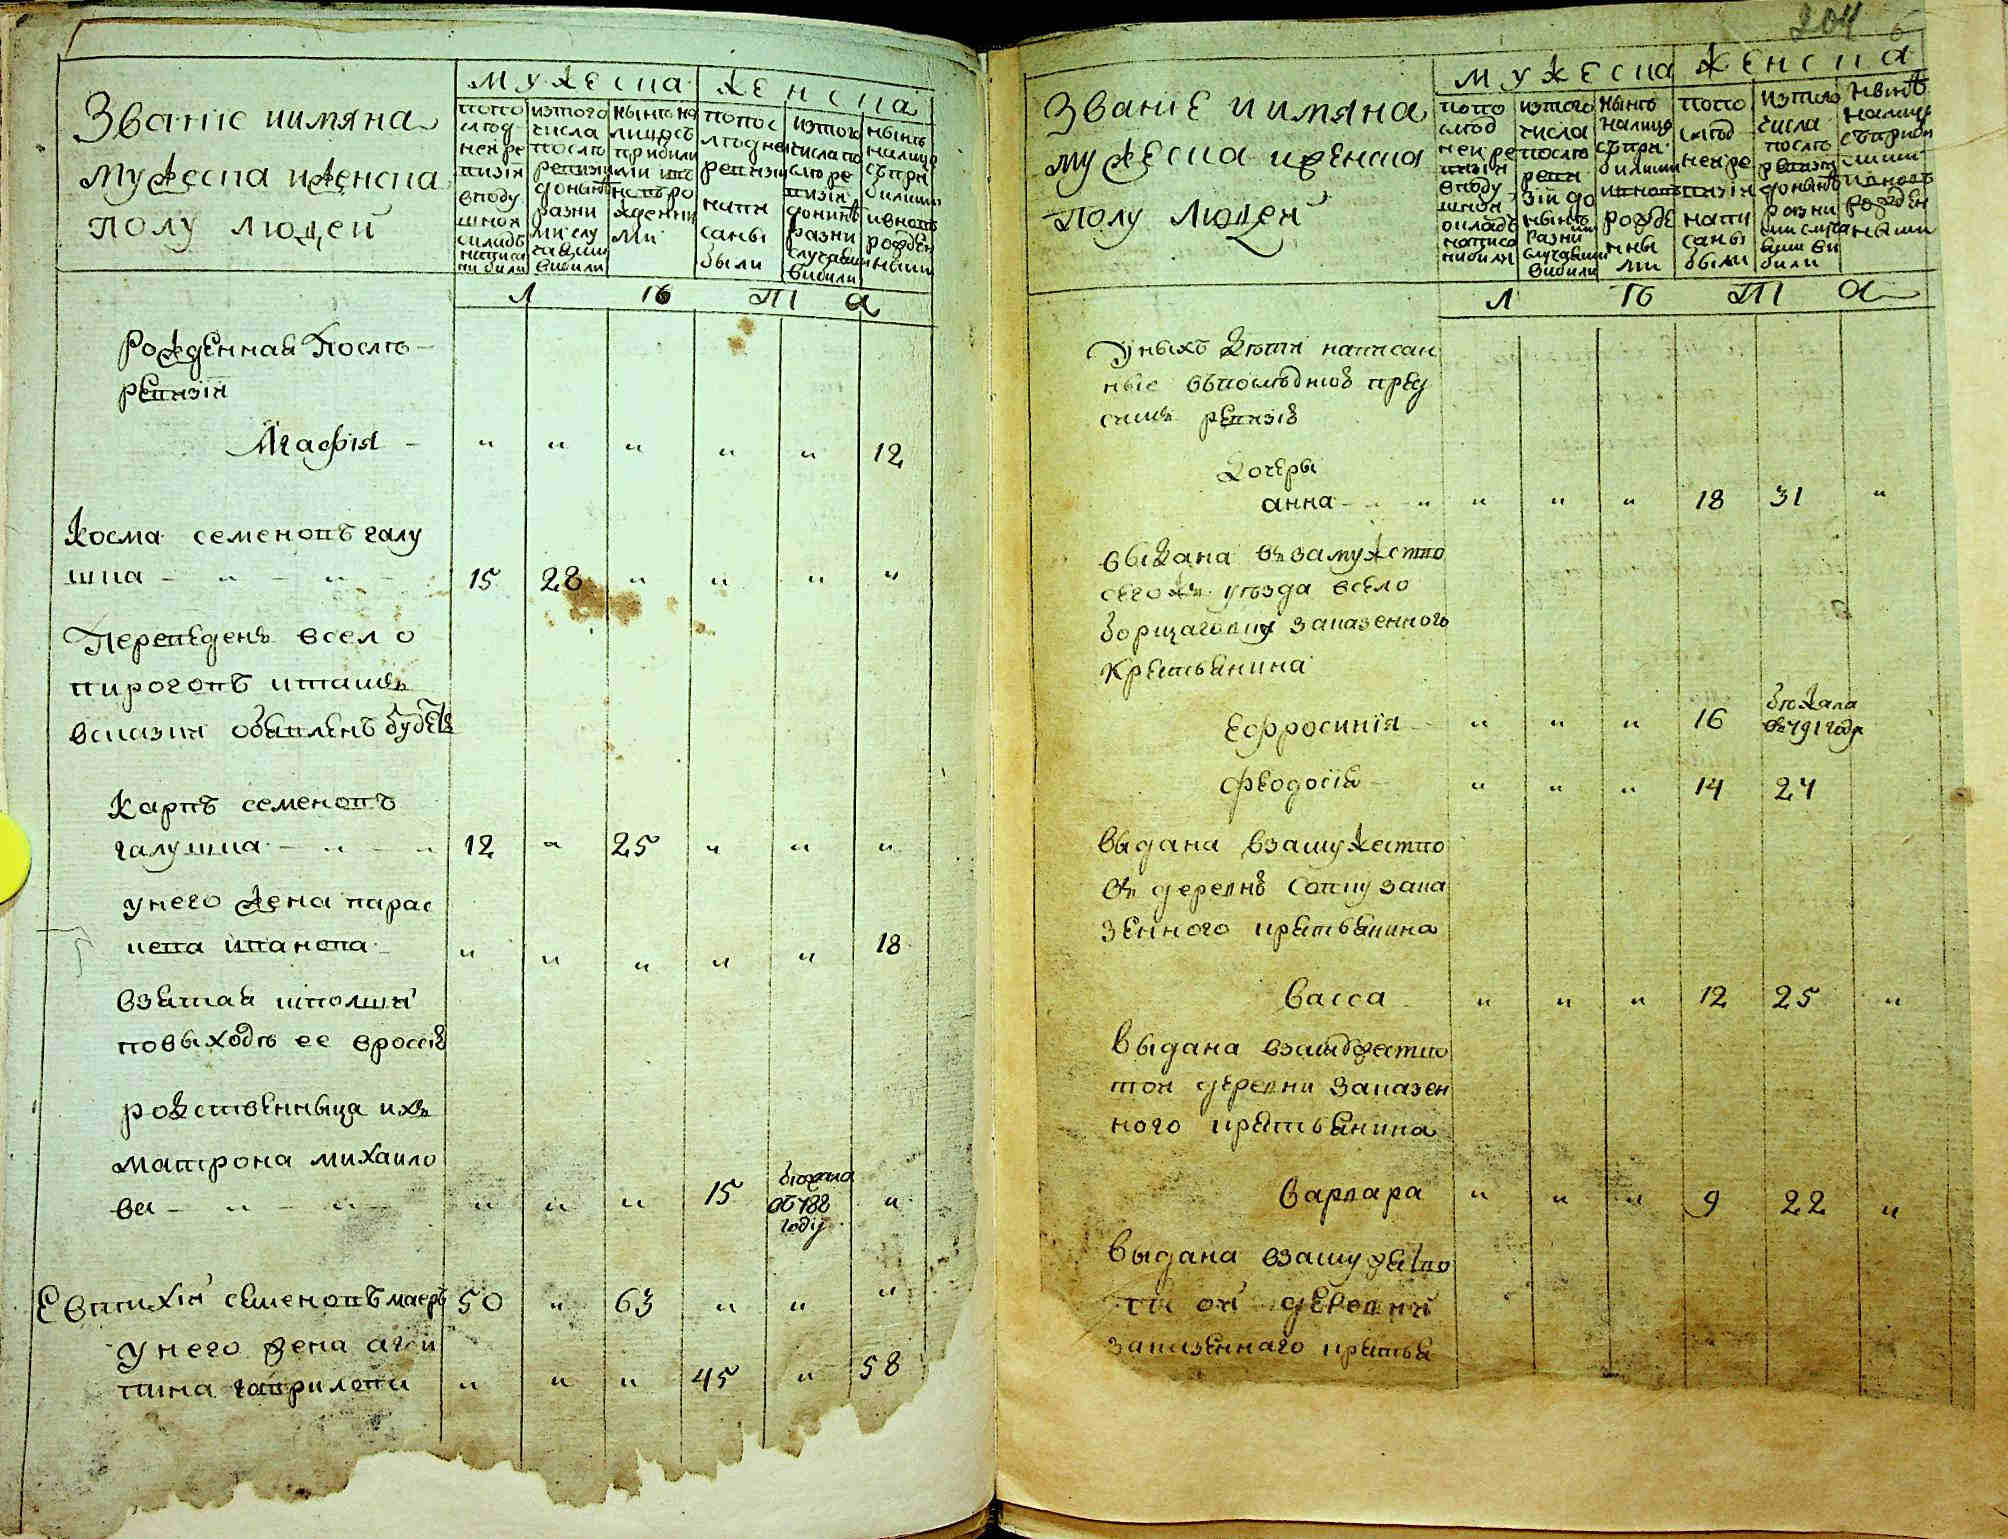 Званіе иимяна
мужеска иженска
полу людей
мужеска
женска
попо
слѣд
ней ре
визіи
вподу
шной
окладъ
написа
ни были
изтого
числа
послѣ
ревизіи
донынѣ
разни
ми слу
чаями
выбыли
нынѣ на
лицо съ
прибыли
ми и въ
новь ро
жденны
ми
попос
лѣдней
ревизіи
напи
саны
были
изтого
числа по
слѣ ре
визіи
донынѣ
разни
случаями
выбыли
нынѣ
налицо
съ при
былыми
ивновь
рожден
ными
Л Ѣ Т А
рожденная Послѣ
ревизіи
Агафія 12
Козма семеновъ галу
шка 15 28
Переведенъ всело
пироговъ итамъ
всказки объявленъ будетъ
Карпъ семеновъ
галушка 12 25
унего жена парас
кева иванова 18
взятая исполши
повыходѣ ее вроссію
родственница ихъ
матрона михаило
ва 15 бежала
въ 788
годѣ
Евтихій семеновъ маеръ 50 63
унего жена агри
пина гаврилова 45 58
204
6
Званіе иимяна
мужеска иженска
полу людей
мужеска
женска
попо
слѣд
ней ре
визіи
вподу
шной
окладъ
написа
ни были
изтого
числа
послѣ
реви
зіи до
нынѣ
разни
ми
случаями
выбыли
нынѣ
налицо
съ при
былыми
ивновь
рожде
нны
ми
попо
слѣд
ней ре
визіи
напи
саны
были
изтого
числа
послѣ
ревизіи
донынѣ
разни
ми случа
ями вы
были
нынѣ
налицо
съ прибы
лыми
ивновь
рожден
ными
Л Ѣ Т А
Уныхъ Дѣти написан
ные впоследней пред
симъ ревизіи
Дочеры
анна 18 31
выдана въ замужство
сегожъ уѣзда всело
борщаговку заказенного
крестьянина
Ефросинія 16 бежала
въ 791 годѣ
Феодосія 14 27
выдана взамужство
въ деревнѣ сопку зака
зенного крестьянина
васса 12 25
выдана взамужство
той деревни заказен
ного крестьянина
варвара 9 22
выдана взамужство
той деревни
заказеннаго крестья